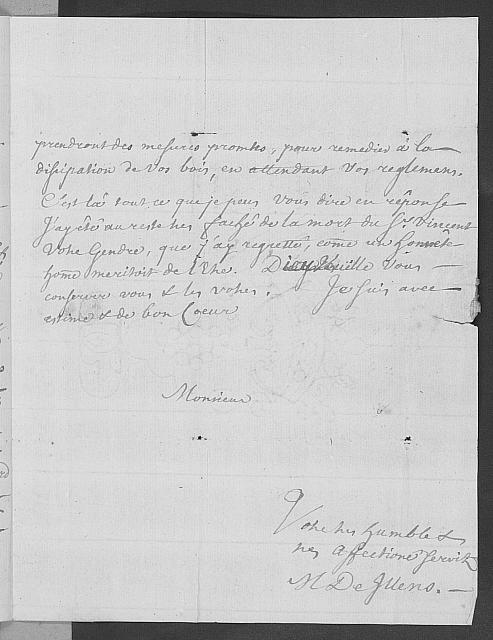 prendront des mesures promtes, pour remedier à la
dissipation de vos bois, en attendant vos reglemens.
C'est là tout ce que je peus vous dire en réponse
J'ay été au reste tres faché de la mort du Sr. Vincent
Votre Gendre, que j'ay regretté, come un honnete
home meritoit de l'etre. Dieu veuille vous
conserver vous & les votres. Je suis avec
estime & de bon Coeur
Monsieur
Votre tres humble &
tres affectioné servitr
M De